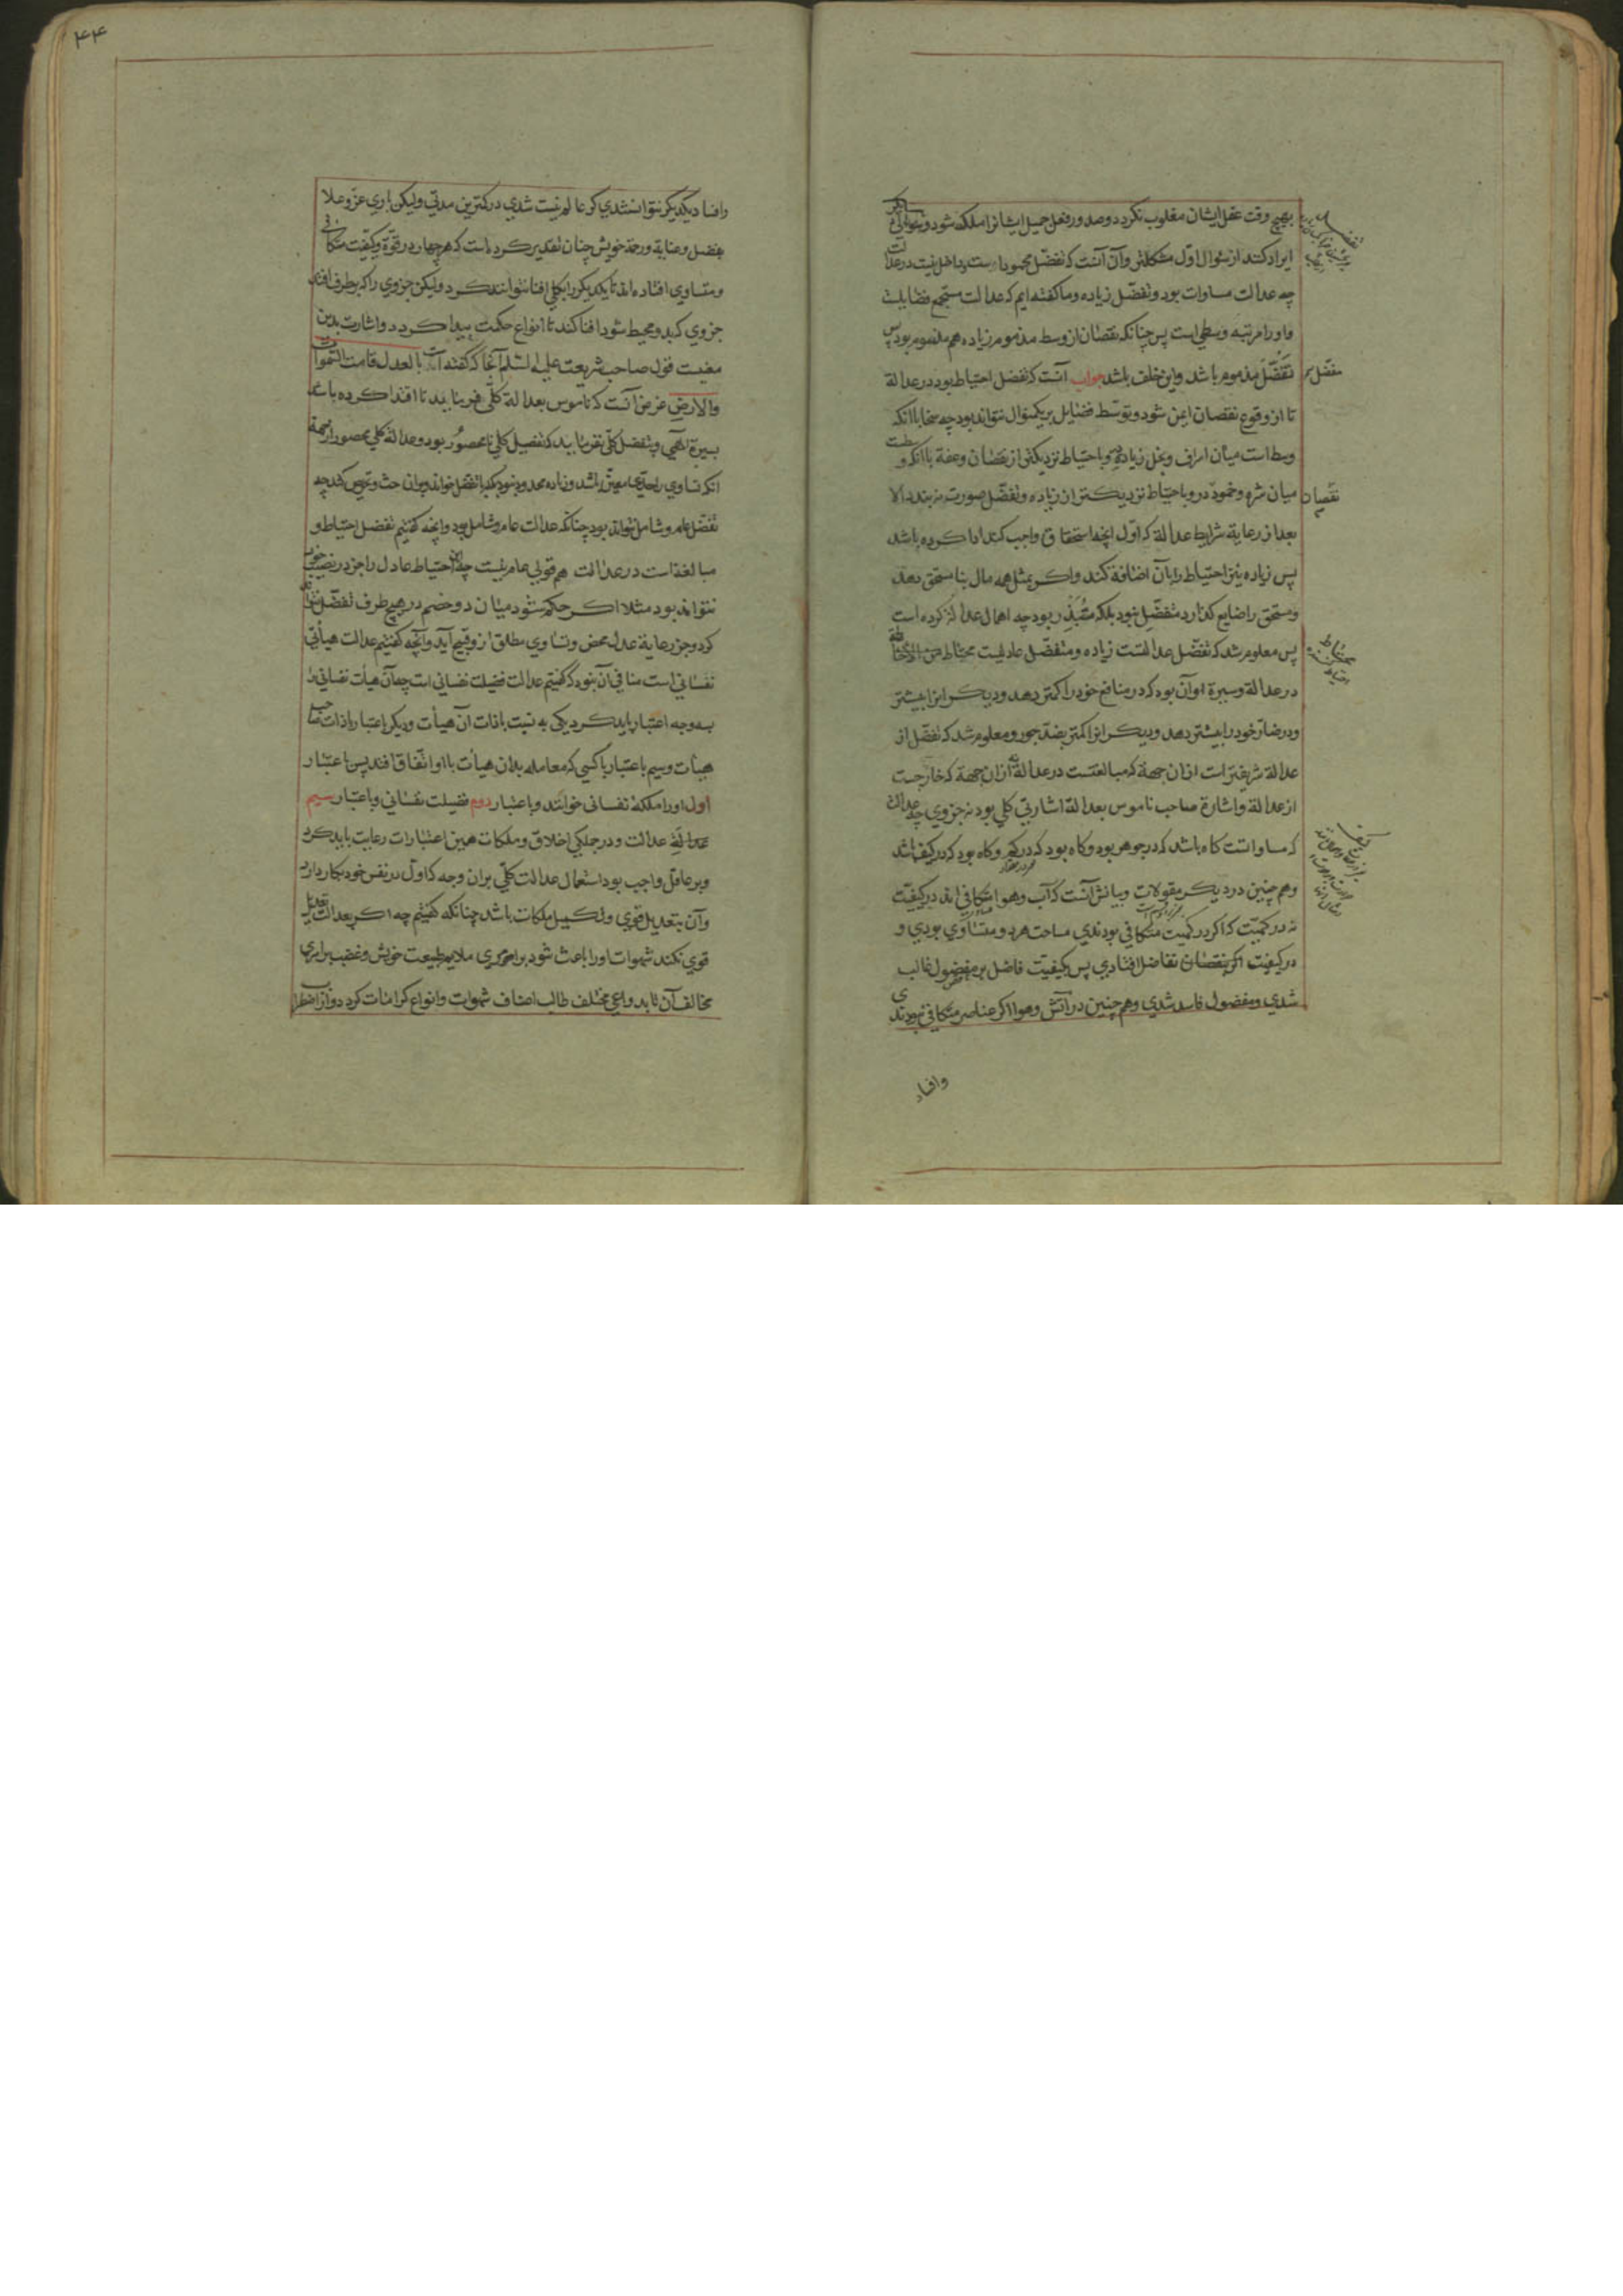 بهیچ وقت عقل ایشان مغلوب نکردد وصدور فعل جمیل ایشانرا ملکه شود وسؤالی دیکر
ایراد کنند از سؤال اوّل مشکلتر وآن آنست که تفضّل محمود است وداخل نیست در عدالت
چه عدالت مساوات بود وتفضّل زیاده وما کفته ایم که عدالت مستجمع فضایلست
واورا مرتبه وسطی است پس چنانکه نقصان از وسط مذموم زیاده هم مذموم بود پس
تفضّل مذموم باشد واین خلف باشد جواب آنست که تفضل احتیاط بود در عدالة
تا از وقوع نقصان ایمن شود وتوسّط فضایل بر یکمنوال نتواند بود چه سخا باآنکه
وسط است میان اسراف وبخل زیاده درو باحتیاط نزدیکتر از نقصان وعفة باآنکه وسطست
میان شره وخمود نقصان درو باحتیاط نزدیکتر از زیاده وتفضّل صورت نه بندد الا
بعد از رعایة شرایط عدالة که اوّل آنچه استحقاق واجب کند ادا کرده باشد
پس زیاده نیز احتیاط را بآن اضافة کند واکر بمثل همه مال بنا مستحق دهد
ومستحق را ضایع کذارد متفضّل نبود بلکه مُبَذّر بود چه اهمال عدالة کرده است
پس معلوم شد که تفضّل عدالتست زیاده ومتفضّل عادلیست محتاط
در عدالة وسیرة او آن بود که در منافع خودرا کمتر دهد ودیکرانرا بیشتر
ودر ضارّ خودرا بیشتر دهد ودیکرانرا کمتر بضدّ جور ومعلوم شد که تفضّل از
عدالة شریفتر است ازان جهة که مبالغتست در عدالة نه ازان جهة که خارجست
از عدالة واشارة صاحب ناموس بعدالة اشارتی کلی بود نه جزوی چه عدالت
که مساواتست کاه باشد که در جوهر بود وکاه بود که در کم وکاه بود که در کیف باشد
وهم چنین در دیکر مقولات وبیانش آنست که آب وهوا متکافی اند در کیفیّت
نه در کمیّت که اکر در کمیت متکافی بودندی مساحت هر دو متساوی بودی و
در کیفیت اکر نقصان تفاضل افتادی پس کیفیّت فاضل بر مفضول غالب
شدی ومفضول فاسد شدی وهم چنین در آتش وهوا اکر عناصر متکافی نبودندی
وافناد
۴۴
وافناد یکدیکر نتوانستندی کرد عالم نیست شدی در کمترین مدتی ولیکن باری عزّ وعلا
بفضل وعنایة ورحمة خویش چنان تقدیر کرده است که هر چهار در قوّة وکیفیّت متکافی
ومتساوی افتاده اند تا یکدیکر را بکلّی افنا نتوانند کرد ولیکن جزوی را که بر طرف افتد
جزوی که بدو محیط شود افنا کند تا انواع حکمت پیدا کردد واشارت بدین
معنیست قول صاحب شریعت علیه السلم آنجا که کفته است بالعدل قامت السّموات
والارض غرض آنست که ناموس بعدالة کلّی فرماید تا اقتدا کرده باشد
بسیرة الهی وبتفضل کلّی نفرماید که تفضل کلّی نامحصور بود وعدالة کلی محصور از جهة
آنکه تساوی را حدّی معیّن باشد وزیاده محدود نبود بلکه با تفضل خواند وبران حث وتحریص کند چه
تفضّل عام وشامل نتواند بود چنانکه عدالت عام وشامل بود وآنچه کفتیم تفضل احتیاط و
مبالغه است در عدالت هم قولی عام نیست چه این احتیاط عادل را جز در نصیب خویش
نتواند بود مثلا اکر حکم شود میان دو خصم در هیچ طرف تفضّل نتواند
کرد وجز رعایة عدل محض وتساوی مطلق ازو قبیح آید وآنچه کفتیم عدالت هیأتی
نفسانی است منافی آن نبود که کفتیم عدالت فضیلت نفسانی است چه آن هیأت نفسانی را
بسه وجه اعتبار باید کرد یکی به نسبت باذات آن هیأت ودیکر باعتبار باذات صاحب
هیأت وسیم باعتبار باکسی که معامله بدان هیأت با او اتّفاق افتد پس باعتبار
اول اورا ملکه نفسانی خوانند وباعتبار دوم فضیلت نفسانی وباعتبار سیم
عدالة عدالت ودر جملکی اخلاق وملکات همین اعتبارات رعایت باید کرد
وبر عاقل واجب بود استعمال عدالت کلّی بران وجه که اوّل در نفس خود بکار دارد
وآن بتعدیل قوی وتکمیل ملکات باشد چنانکه کفتیم چه اکر بعدالت تعدیل
قوی نکند شهوات اورا باعث شود بر امری ملایم طبیعت خویش وغضب بر امری
مخالف آن تا بدواعی مختلف طالب اصناف شهوات وانواع کرامات کردد واز اضطراب